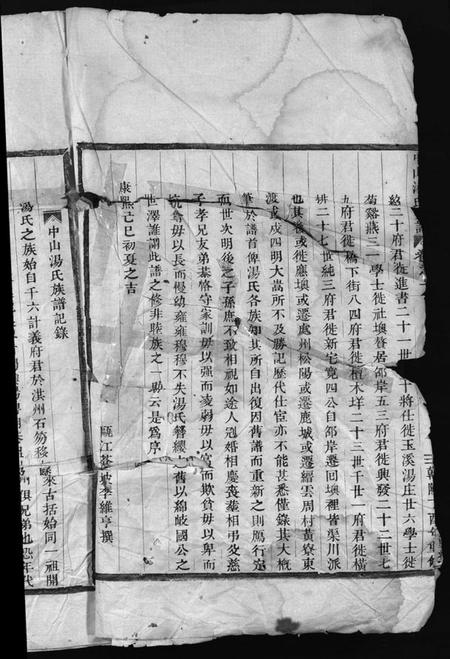 中山湯氏
啟二十府君徙進書二十一世
十將仕徙玉溪湯庄廿六學士徙
菊谿燕三一學士徙社墺贅居邵岸五三府君徙興發二十二世七
九府君徙橋下街八四府君徙檀木垟二十三世千廿一府君徙橫
垟二十七世純三府君徙新宅寬四公自邵岸遷回墺裡皆渠川派
也其番或徙應墺或遷處州松陽或遷鹿城或遷縉雲周村黃寮東
渡或戍四明大嵩所不及勝記歷代仕宦亦不能甚悉僅錄其大概
筆於譜首俾湯氏各族知其所自出復因舊譜而重新之則篤行定
而世次明後之子孫庶不致相視如途人冠婚相慶喪葬相弔父慈
子孝兄友弟恭恪守家訓毋以強而凌弱毋以富而欺貧毋以卑而
抗尊毋以長而慢幼雍雍穆穆不失湯氏簪纓之舊以綿岐國公之
世澤誰謂此譜之修非睦族之一助云是爲序
康熙己巳初夏之吉
甌江蒼坡李維亨撰
中山湯氏族譜記錄
湯氏之族始自千六計義府君於淇州石笏移
歷來古括始同一祖開
俱兄弟也恐年代